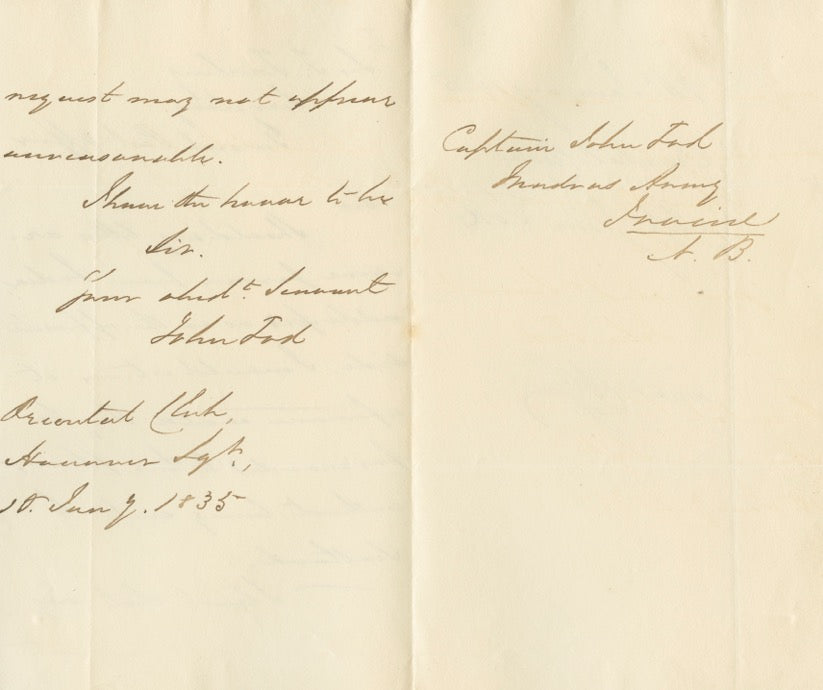 request may not appear
unreasonable.
I have the honor to be
Sir.
Your obedt. Servant
John Tod
Oriental Club,
Hanover Sqre.,
Jany. 1835
Captain John Tod
Madras Army
Irvine
N. B.